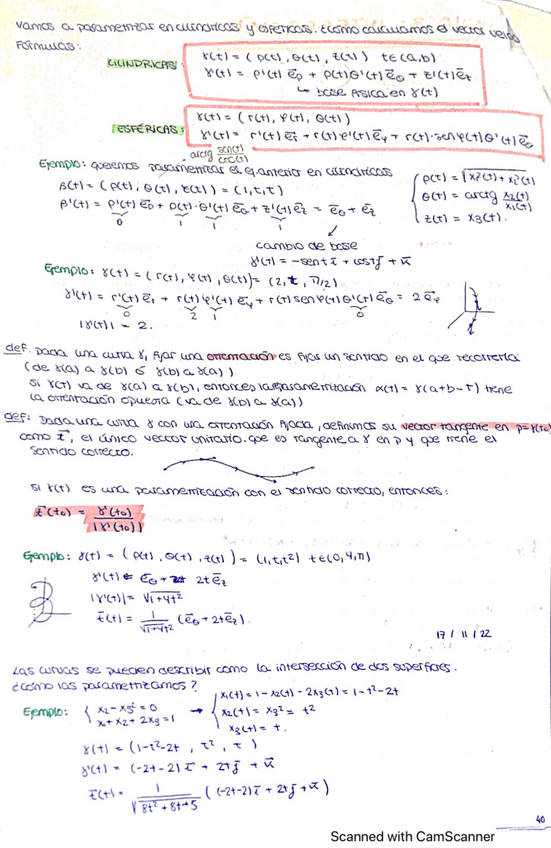 Vamos a parametrizar en cilíndricas y esféricas. ¿cómo calculamos el vector
Fórmulas:
CILINDRICAS: γ(t) = (ρ(t), θ(t), z(t)) t∈(a,b)
γ'(t) = ρ'(t) e̅ρ + ρ(t)θ'(t) e̅θ + z'(t) e̅z
↳ base física en γ(t)
ESFÉRICAS: γ(t) = (r(t), φ(t), θ(t))
γ'(t) = r'(t) e̅r + r(t)φ'(t) e̅φ + r(t)·senφ(t)θ'(t) e̅θ
arctg sen(t)/cos(t)
Ejemplo: queremos parametrizar el ej anterior en cilíndricas
β(t) = (ρ(t), θ(t), z(t)) = (1,t,t)
β'(t) = ρ'(t) e̅ρ + ρ(t)·θ'(t) e̅θ + z'(t) e̅z = e̅θ + e̅z
0 1 1 1
{ ρ(t) = √x₁²(t) + x₂²(t)
θ(t) = arctg x₂(t)/x₁(t)
z(t) = x₃(t).
cambio de base
γ'(t) = -sent i̅ + cost j̅ + k̅
Ejemplo: γ(t) = (r(t), φ(t), θ(t)) = (2, t, π/2)
γ'(t) = r'(t) e̅r + r(t)φ'(t) e̅φ + r(t)senφ(t)θ'(t) e̅θ = 2e̅φ
0 2 1 0
|γ'(t)| = 2.
def: Dada una curva γ, fijar una orientación es fijar un sentido en el que recorrerla
(de γ(a) a γ(b) ó γ(b) a γ(a))
Si γ(t) va de γ(a) a γ(b), entonces la reparametrización α(t) = γ(a+b-t) tiene
la orientación opuesta (va de γ(b) a γ(a))
def: Dada una curva γ con una orientación fijada, definimos su vector tangente en p=γ(t₀)
como t̅, el único vector unitario que es tangente a γ en p y que tiene el
sentido correcto.
Si γ(t) es una parametrización con el sentido correcto, entonces:
t̅(t₀) = γ'(t₀)/|γ'(t₀)|
Ejemplo: γ(t) = (ρ(t), θ(t), z(t)) = (1,t,t²) t∈(0,4π)
γ'(t) = e̅θ + 2t e̅z
|γ'(t)| = √1+4t²
t̅(t) = 1/√1+4t² (e̅θ + 2t e̅z).
17/11/22
Las curvas se pueden describir como la intersección de dos superficies.
¿cómo las parametrizamos?
Ejemplo: { x₂ - x₃² = 0
x₁ + x₂ + 2x₃ = 1
→ { x₁(t) = 1 - x₂(t) - 2x₃(t) = 1 - t² - 2t
x₂(t) = x₃² = t²
x₃(t) = t.
γ(t) = (1-t²-2t, t², t)
γ'(t) = (-2t-2) i̅ + 2t j̅ + k̅
t̅(t) = 1/√8t²+8t+5 ((-2t-2) i̅ + 2t j̅ + k̅)
40
Scanned with CamScanner